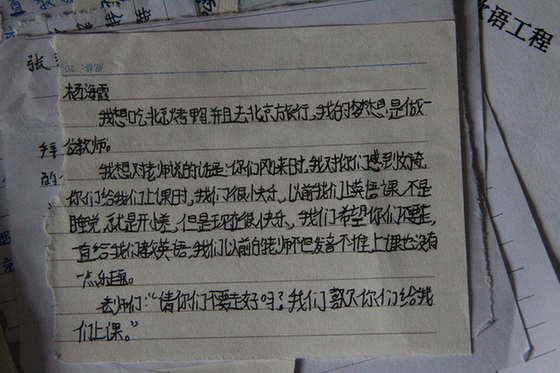 语工程
张
杨海霞
我想吃北京烤鸭,并且去北京旅行。我的梦想是做一
名教师。
我想对老师说的话是:你们刚来时,我对你们感到好奇,
你们给我们上课时,我们很快乐。以前我们上英语课,不是
睡觉就是开小差,但是现在很快乐。我们希望你们不要走,
一直给我们教英语,我们以前的老师不但发音不准,上课也没有
一点乐趣。
老师们:“请你们不要走好吗?我们喜欢你们给我
们上课。”